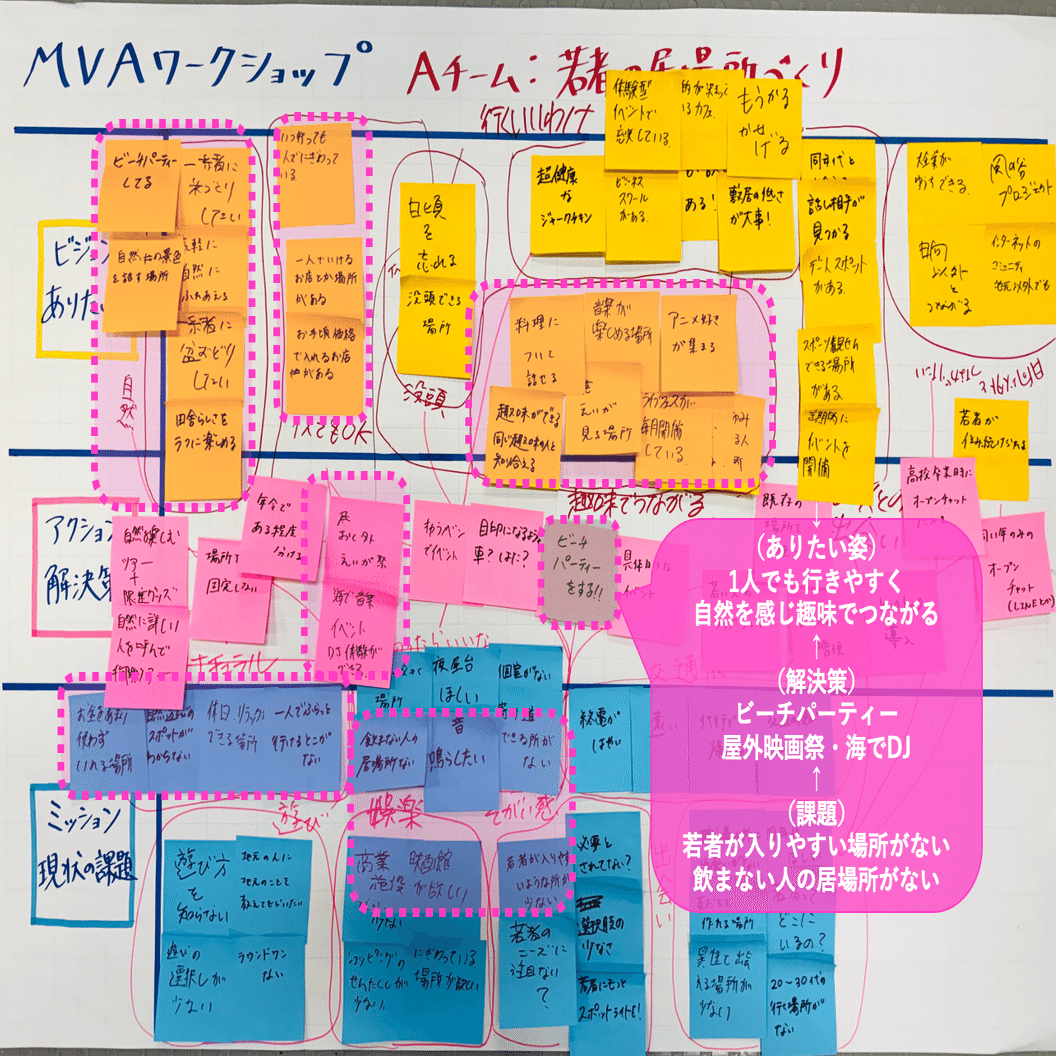 MVAワークショップ
Aチーム：若者の居場所づくり
行くいいわけ
ビジョン
ありたい
ビーチパーティー
してる
一斉に
米づくり
したい
自然や景色
を話す場所
気軽に
自然に
ふれあえる
盆おどり
したい
田舎らしさを
ラフに楽しめる
自然
いつ行っても
人でにぎわって
いる
一人でいける
お店とか場所
がある
お手頃価格
で入れるお店
がある
1人でもOK
日頃
を
忘れる
没頭できる
場所
没頭
超健康
な
ジャークチキン
体験型
イベントで
試している
ビジネス
スクール
がある
もうかる
かせげる
敷居の低さ
が大事！
料理に
ついて
話せる
音楽が
楽しめる場所
アニメ好き
が集まる
趣味ができる
同じ趣味の人と
知り合える
えいが
見る場所
毎月開催
している
趣味でつながる
同年代と
話し相手が
見つかる
デートスポット
がある
スポーツ観戦
できる場所
がある
定期的に
イベントを
開催
大企業が
プロジェクト
日向
以外と
つながる
インターネットの
コミュニティ
地元以外でも
若者が
住み続けられる
アクション
解決策
自然を楽しむ
ツアー
+
限定グッズ
自然に詳しい
人を呼んで
場所を
固定しない
年令で
ある程度
分ける
おくがい
えいが祭
海で音楽
イベント
DJ体験が
できる
ゆうべン
でイベント
目印になるような
車？はた？
ビーチ
パーティー
をする!!
イベント
既存の
高校卒業時に
オープンチャット
同い年のみの
オープン
チャット
(LINEとか)
ナチュラル
ミッション
現状の課題
お金をあまり
使わず
いれる場所
自然遊びの
スポットが
わからない
休日、リラックス
できる場所
一人でふらっと
行けるとこが
ない
飲まない人の
居場所ない
夜屋台
ほしい
音
鳴らしたい
個室がない
寄り道
できる所が
ない
終電が
はやい
遊び
娯楽
遊び方
を
知らない
地元の人に
地元のこと
教えてもらいたい
遊びの
選択しが
少ない
ラウンドワン
ない
商業
施設
少ない
映画館
が欲しい
ショッピングの
せんたくしが
少ない
にぎわっている
場所が欲しい
若者が入りやす
いような所が
少ない
若者の
ニーズに
注目ない
？
必要と
されてない？
選択肢の
少なさ
若者にもっと
スポットライトを！
作れる場所
異性と出会
える場所が
少ない
どこに
いるの？
20〜30代の
行く場所が
ない
(ありたい姿)
1人でも行きやすく
自然を感じ趣味でつながる
↑
(解決策)
ビーチパーティー
屋外映画祭・海でDJ
↑
(課題)
若者が入りやすい場所がない
飲まない人の居場所がない